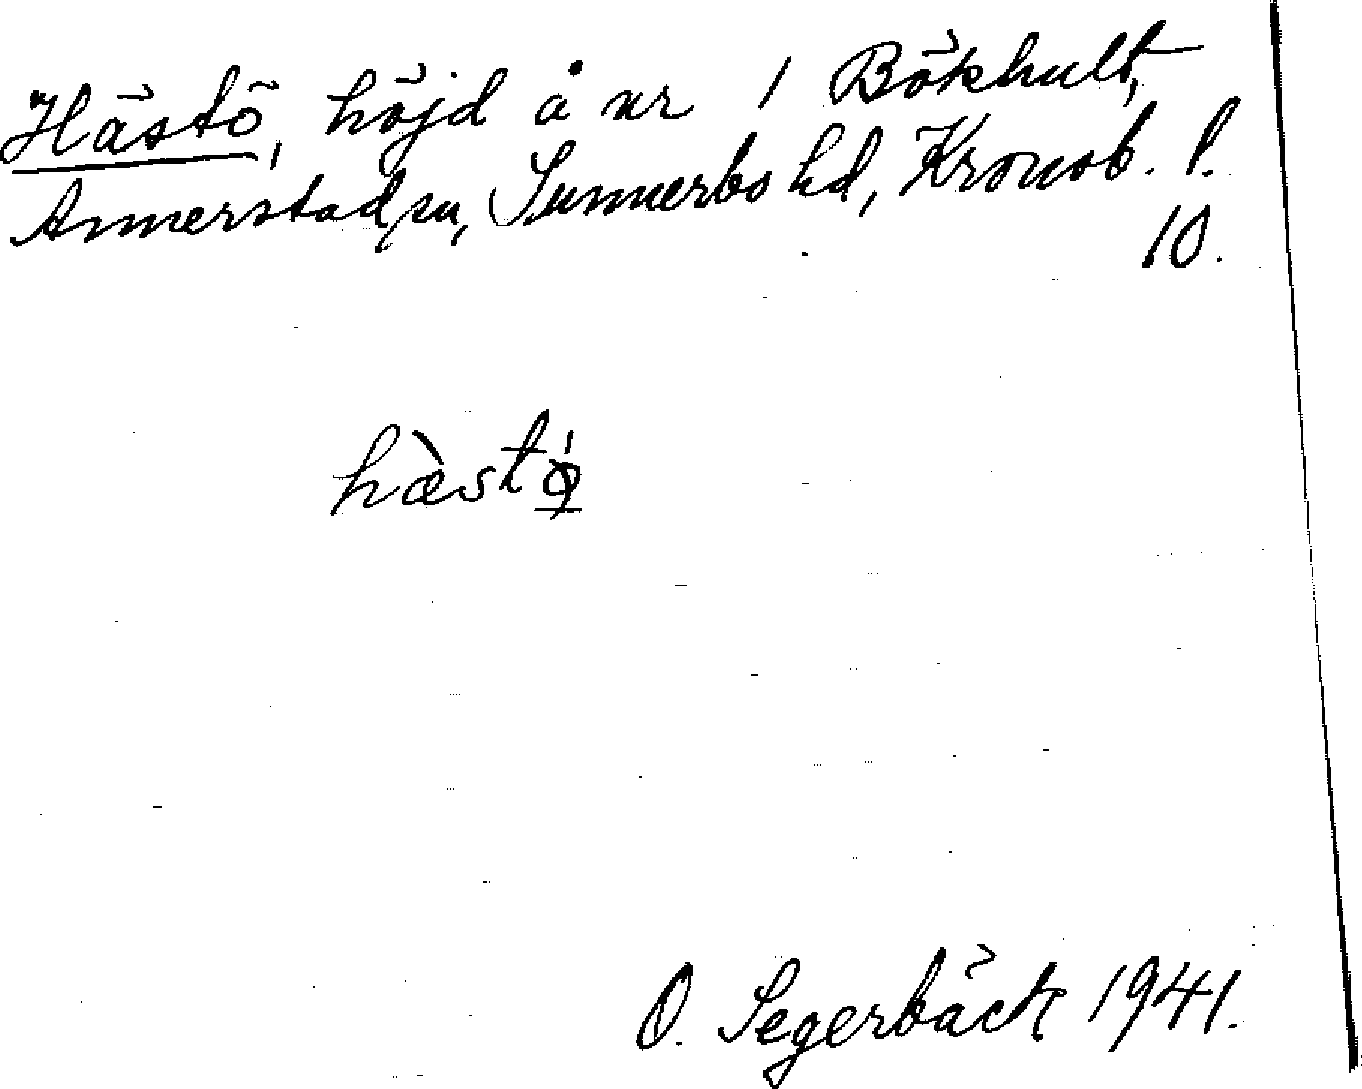 Hästö, höjd å nr 1 Bökhult,
Annerstad sn, Sunnerbo hd, Kronob. l.
10.
hæ̀stǿ
O. Segerbäck 1941.